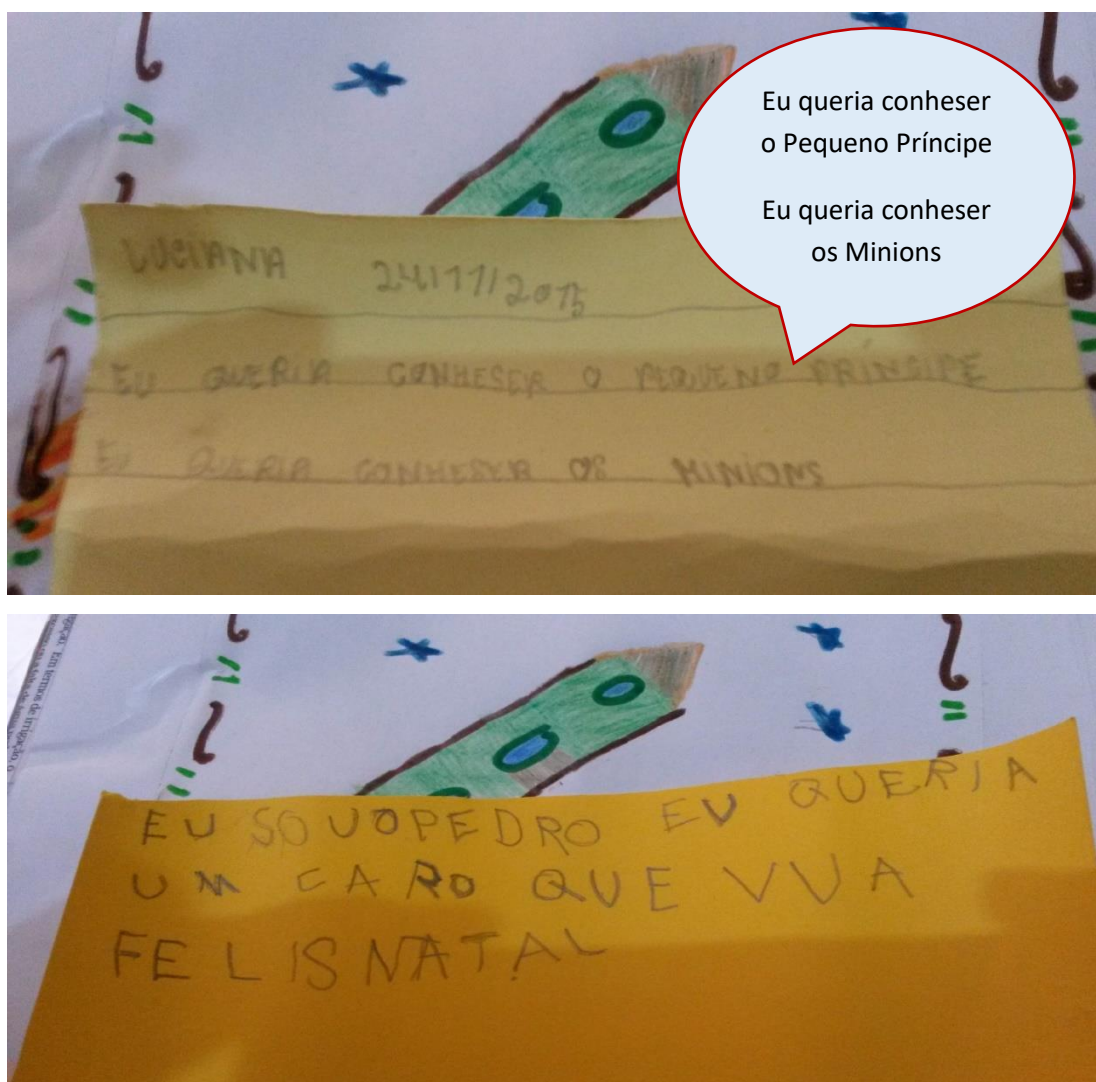 Eu queria conheser
o Pequeno Príncipe
Eu queria conheser
os Minions
LUCIANA 24/11/2015
EU QUERIA CONHESER O PEQUENO PRÍNCIPE
EU QUERIA CONHESER OS MINIONS
Em termos de irrigação, o
EU SOUOPEDRO EU QUERIA
UM CARO QUE VUA
FELISNATAL